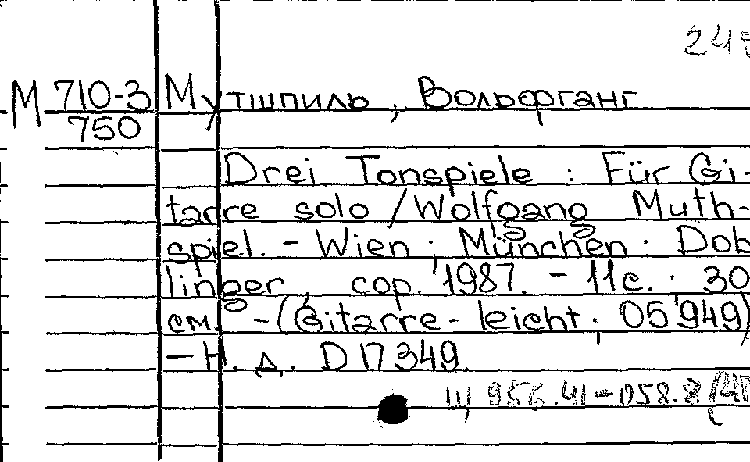 М 710-3
750
Мутшпиль, Вольфганг
Drei Tonspiele : Für Gi-
tarre solo / Wolfgang Muth-
spiel. - Wien ; München : Dob
linger, cop. 1987. - 11 с. ; 30
см. - (Gitarre - leicht ; 05949)
- Н. д. D 17349.